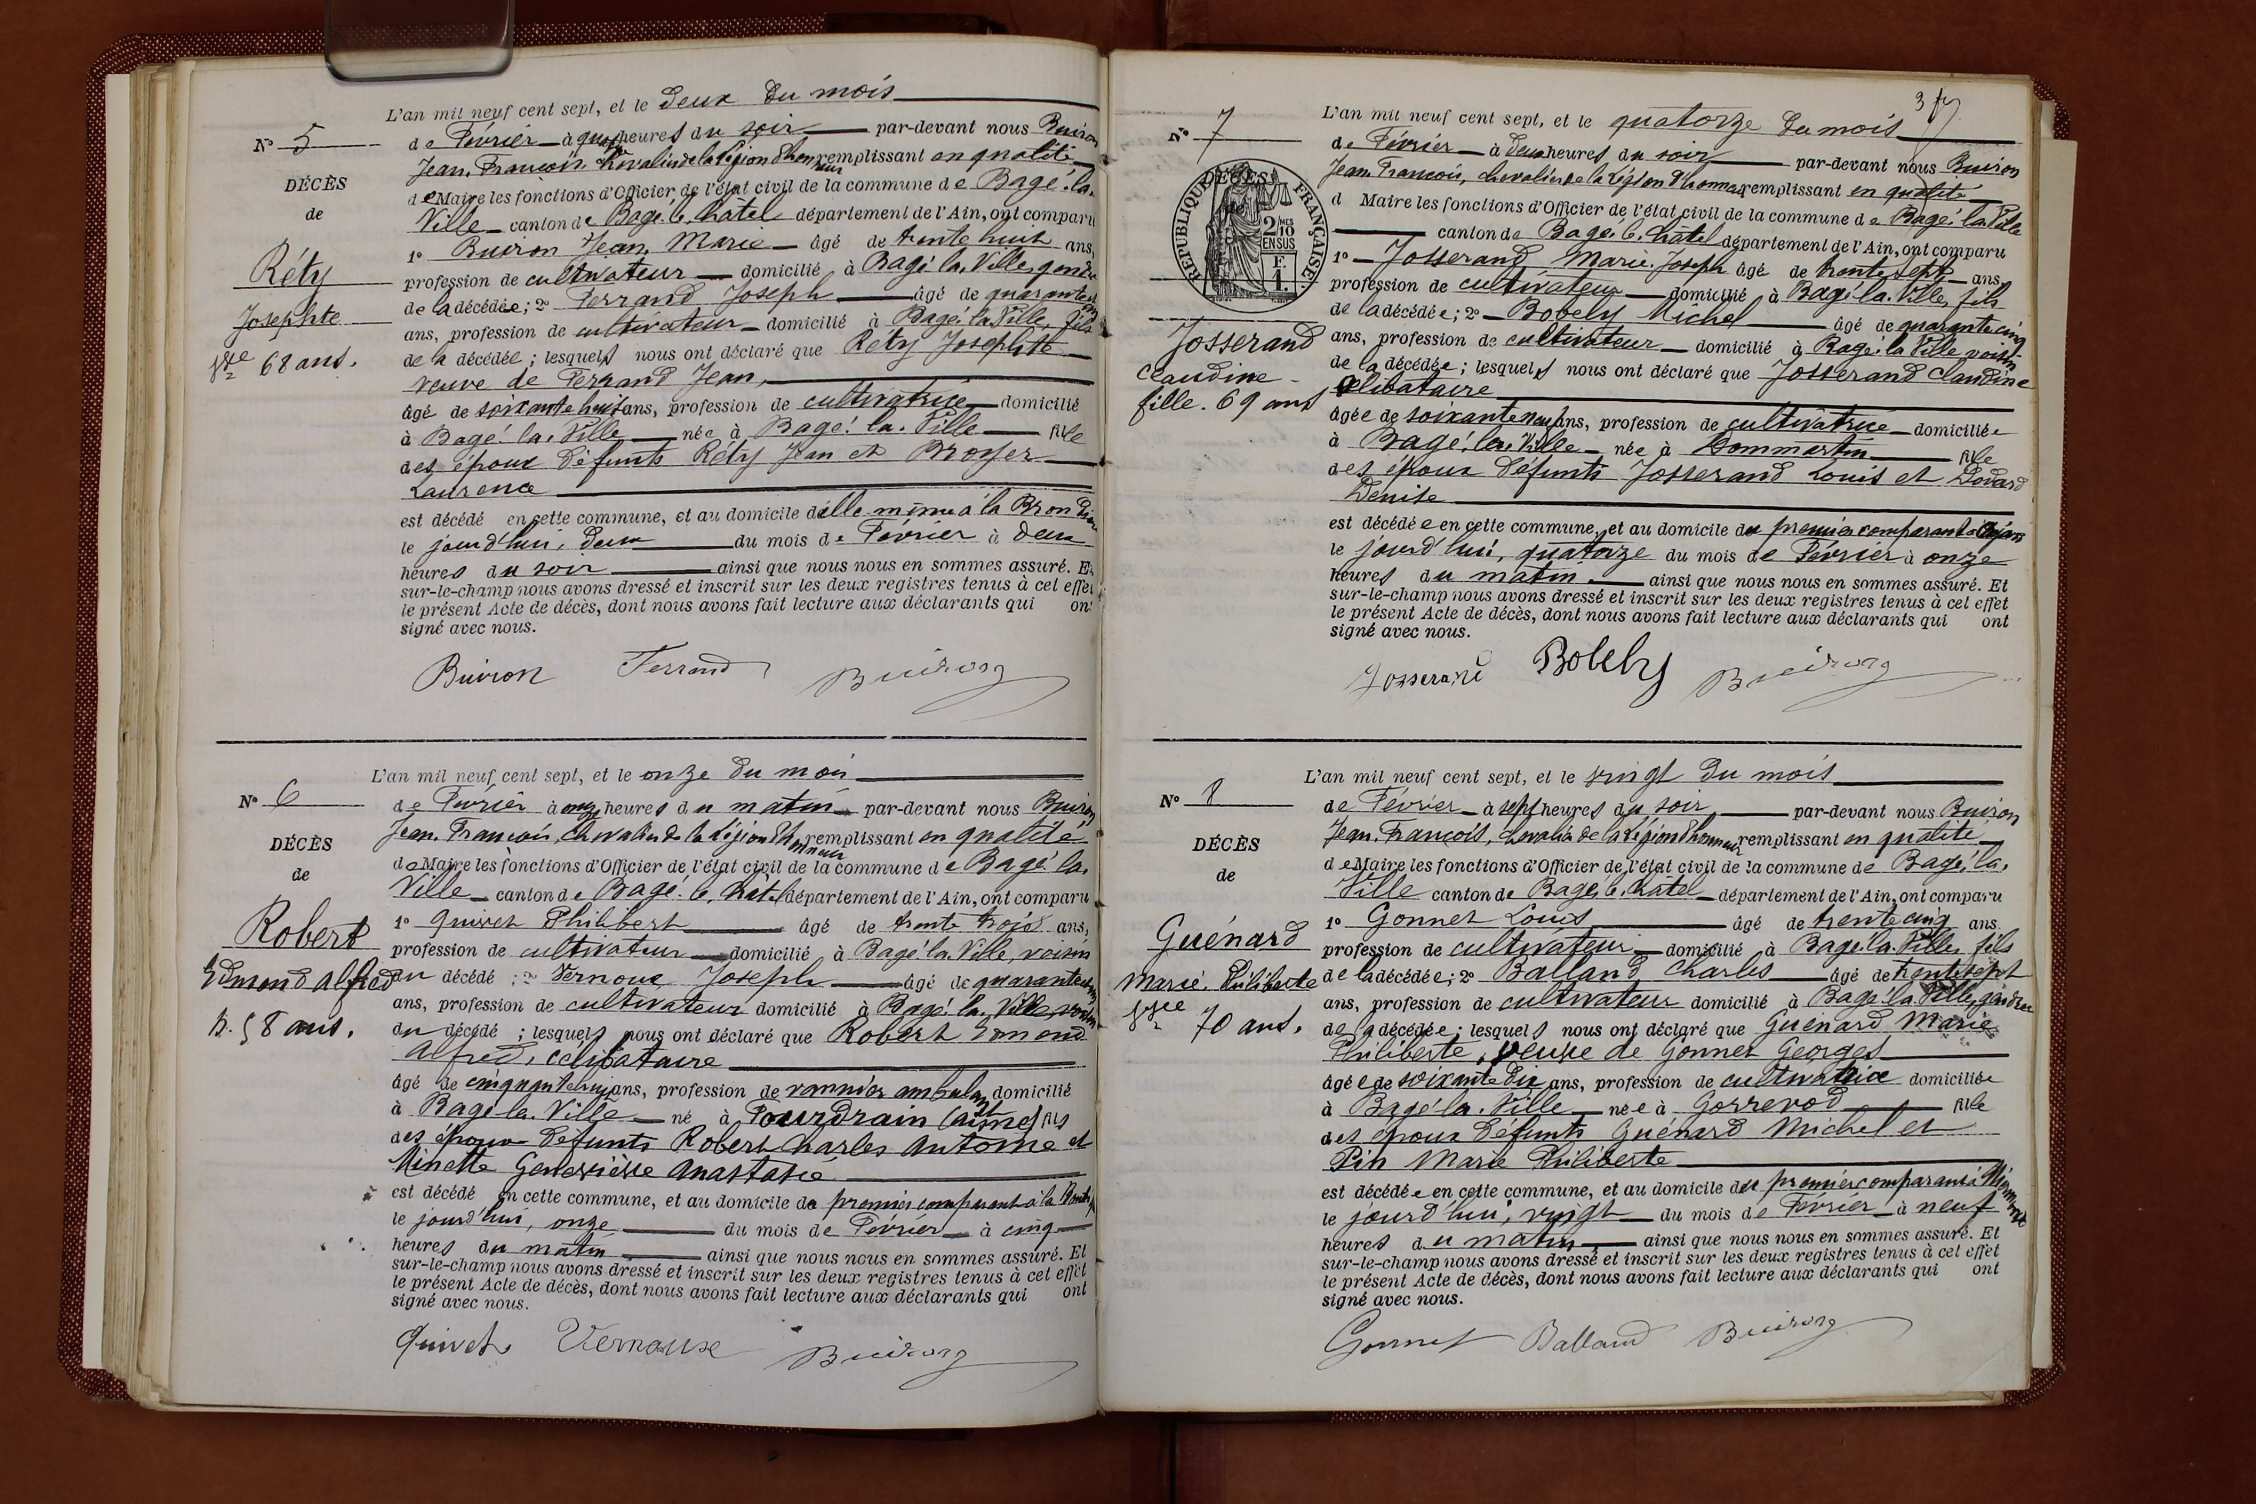 L'an mil neuf cent sept, et le deux du mois
N° 5
de Février à quatre heures du soir par-devant nous Buiron
Jean François, Chevalier de la Légion d'honneur remplissant en qualité
DÉCÈS
de Maire les fonctions d'Officier de l'état civil de la commune de Bagé-la-
de
Ville canton de Bagé-le-Châtel département de l'Ain, ont comparu
1° Buiron Jean Marie âgé de trente huit ans,
Réty
profession de cultivateur domicilié à Bagé la Ville, gendre
de la décédée ; 2° Ferrand Joseph âgé de quarante
Josephte
ans, profession de cultivateur domicilié à Bagé la Ville, fils
de la décédée ; lesquels nous ont déclaré que Réty Josephte
Vve 68 ans.
veuve de Ferrand Jean,
âgé de soixante huit ans, profession de cultivatrice domicilié
à Bagé-la-Ville née à Bagé-la-Ville fille
des époux défunts Réty Jean et Broyer
Laurence
est décédé en cette commune, et au domicile d'elle même à la
le jourd'hui, deux du mois de Février à deux
heures du soir ainsi que nous nous en sommes assuré. Et
sur-le-champ nous avons dressé et inscrit sur les deux registres tenus à cet effet
le présent Acte de décès, dont nous avons fait lecture aux déclarants qui ont
signé avec nous.
Buiron Ferrand Buiron
L'an mil neuf cent sept, et le onze du mois
N° 6
de Février à onze heures du matin par-devant nous Buiron
Jean François, Chevalier de la Légion d'honneur remplissant en qualité
DÉCÈS
de Maire les fonctions d'Officier de l'état civil de la commune de Bagé-la-
de
Ville canton de Bagé-le-Châtel département de l'Ain, ont comparu
1° Quivet Philibert âgé de trente trois ans,
Robert
profession de cultivateur domicilié à Bagé la Ville, voisin
Edmond Alfred
du décédé ; 2° Vernoux Joseph âgé de quarante
ans, profession de cultivateur domicilié à Bagé-la-Ville, voisin
58 ans.
du décédé ; lesquels nous ont déclaré que Robert Edmond
Alfred, célibataire
âgé de cinquante huit ans, profession de vannier ambulant domicilié
à Bagé-la-Ville né à Fourdrain (Aisne) fils
des époux défunts Robert Charles Antoine et
Minette Geneviève Anastasie
est décédé en cette commune, et au domicile du premier comparant à la
le jourd'hui, onze du mois de Février à cinq
heures du matin ainsi que nous nous en sommes assuré. Et
sur-le-champ nous avons dressé et inscrit sur les deux registres tenus à cet effet
le présent Acte de décès, dont nous avons fait lecture aux déclarants qui ont
signé avec nous.
Quivet Vernoux Buiron
3
L'an mil neuf cent sept, et le quatorze du mois
N° 7
de Février à deux heures du soir par-devant nous Buiron
Jean François, chevalier de la Légion d'honneur remplissant en qualité
DÉCÈS
RÉPUBLIQUE FRANÇAISE
2/10 EN SUS
F. 1.
d Maire les fonctions d'Officier de l'état civil de la commune de Bagé-la-Ville
canton de Bagé-le-Châtel département de l'Ain, ont comparu
1° Josserand Marie Joseph âgé de trente sept ans,
profession de cultivateur domicilié à Bagé-la-Ville, fils
de la décédée ; 2° Bobely Michel âgé de quarante cinq
Josserand
ans, profession de cultivateur domicilié à Bagé-la-Ville, voisin
de la décédée ; lesquels nous ont déclaré que Josserand Claudine
Claudine
célibataire
fille. 69 ans
âgée de soixante neuf ans, profession de cultivatrice domiciliée
à Bagé-la-Ville née à Dommartin fille
des époux défunts Josserand Louis et Dovard
Denise
est décédée en cette commune, et au domicile du premier comparant à
le jourd'hui, quatorze du mois de Février à onze
heures du matin ainsi que nous nous en sommes assuré. Et
sur-le-champ nous avons dressé et inscrit sur les deux registres tenus à cet effet
le présent Acte de décès, dont nous avons fait lecture aux déclarants qui ont
signé avec nous.
Josserand Bobely Buiron
L'an mil neuf cent sept, et le vingt du mois
N° 8
de Février à sept heures du soir par-devant nous Buiron
Jean François, chevalier de la Légion d'honneur remplissant en qualité
DÉCÈS
de Maire les fonctions d'Officier de l'état civil de la commune de Bagé-la-
de
Ville canton de Bagé-le-Châtel département de l'Ain, ont comparu
1° Gonnet Louis âgé de trente cinq ans
Guénard
profession de cultivateur domicilié à Bagé la Ville, fils
Marie Philiberte
de la décédée ; 2° Balland Charles âgé de trente sept
ans, profession de cultivateur domicilié à Bagé la Ville, gendre
Vve 70 ans.
de la décédée ; lesquels nous ont déclaré que Guénard Marie
Philiberte, veuve de Gonnet Georges
âgée de soixante dix ans, profession de cultivatrice domiciliée
à Bagé-la-Ville née à Gorrevod fille
des époux défunts Guénard Michel et
Pin Marie Philiberte
est décédée en cette commune, et au domicile du premier comparant à
le jourd'hui, vingt du mois de Février à neuf
heures du matin ainsi que nous nous en sommes assuré. Et
sur-le-champ nous avons dressé et inscrit sur les deux registres tenus à cet effet
le présent Acte de décès, dont nous avons fait lecture aux déclarants qui ont
signé avec nous.
Gonnet Balland Buiron